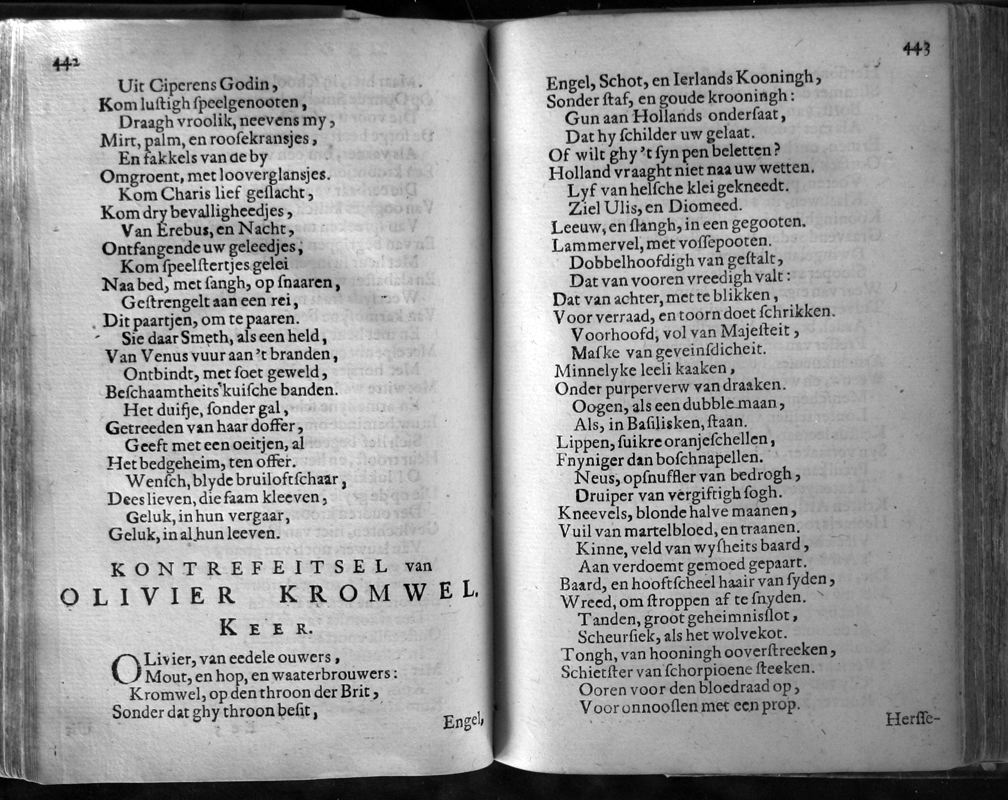 442
Uit Ciperens Godin,
Kom luſtigh ſpeelgenooten,
Draagh vroolik, neevens my,
Mirt, palm, en rooſekransjes,
En fakkels van de by
Omgroent, met looverglansjes.
Kom Charis lief geſlacht,
Kom dry bevalligheedjes,
Van Erebus, en Nacht,
Ontfangende uw geleedjes;
Kom ſpeelſtertjes gelei
Naa bed, met ſangh, op ſnaaren,
Geſtrengelt aan een rei,
Dit paartjen, om te paaren.
Sie daar Smeth, als een held,
Van Venus vuur aan't branden,
Ontbindt, met ſoet geweld,
Beſchaamtheits kuiſche banden.
Het duifje, ſonder gal,
Getreeden van haar doffer,
Geeft met een oeitjen, al
Het bedgeheim, ten offer.
Wenſch, blyde bruiloftſchaar,
Dees lieven, die faam kleeven,
Geluk, in hun vergaar,
Geluk, in al hun leeven.
KONTREFEITSEL van
OLIVIER KROMWEL.
KEER.
OLivier, van eedele ouwers,
Mout, en hop, en waaterbrouwers:
Kromwel, op den throon der Brit,
Sonder dat ghy throon beſit,
Engel,
443
Engel, Schot, en Ierlands Kooningh,
Sonder ſtaf, en goude krooningh:
Gun aan Hollands onderſaat,
Dat hy ſchilder uw gelaat.
Of wilt ghy 't ſyn pen beletten?
Holland vraaght niet naa uw wetten.
Lyf van helſche klei gekneedt.
Ziel Ulis, en Diomeed.
Leeuw, en ſlangh, in een gegooten.
Lammervel, met voſſepooten.
Dobbelhoofdigh van geſtalt,
Dat van vooren vreedigh valt:
Dat van achter, met te blikken,
Voor verraad, en toorn doet ſchrikken.
Voorhoofd, vol van Majeſteit,
Maſke van geveinſdicheit.
Minnelyke leeli kaaken,
Onder purperverw van draaken.
Oogen, als een dubble maan,
Als, in Baſilisken, ſtaan.
Lippen, ſuikre oranjeſchellen,
Fnyniger dan boſchnapellen.
Neus, opſnuffler van bedrogh,
Druiper van vergiftigh ſogh.
Kneevels, blonde halve maanen,
Vuil van martelbloed, en traanen.
Kinne, veld van wyſheits baard,
Aan verdoemt gemoed gepaart.
Baard, en hooftſcheel haair van ſyden,
Wreed, om ſtroppen af te ſnyden.
Tanden, groot geheimnisſlot,
Scheurſiek, als het wolvekot.
Tongh, van hooningh ooverſtreeken,
Schietſter van ſchorpioene ſteeken.
Ooren voor den bloedraad op,
Voor onnooſlen met een prop.
Herſſe-